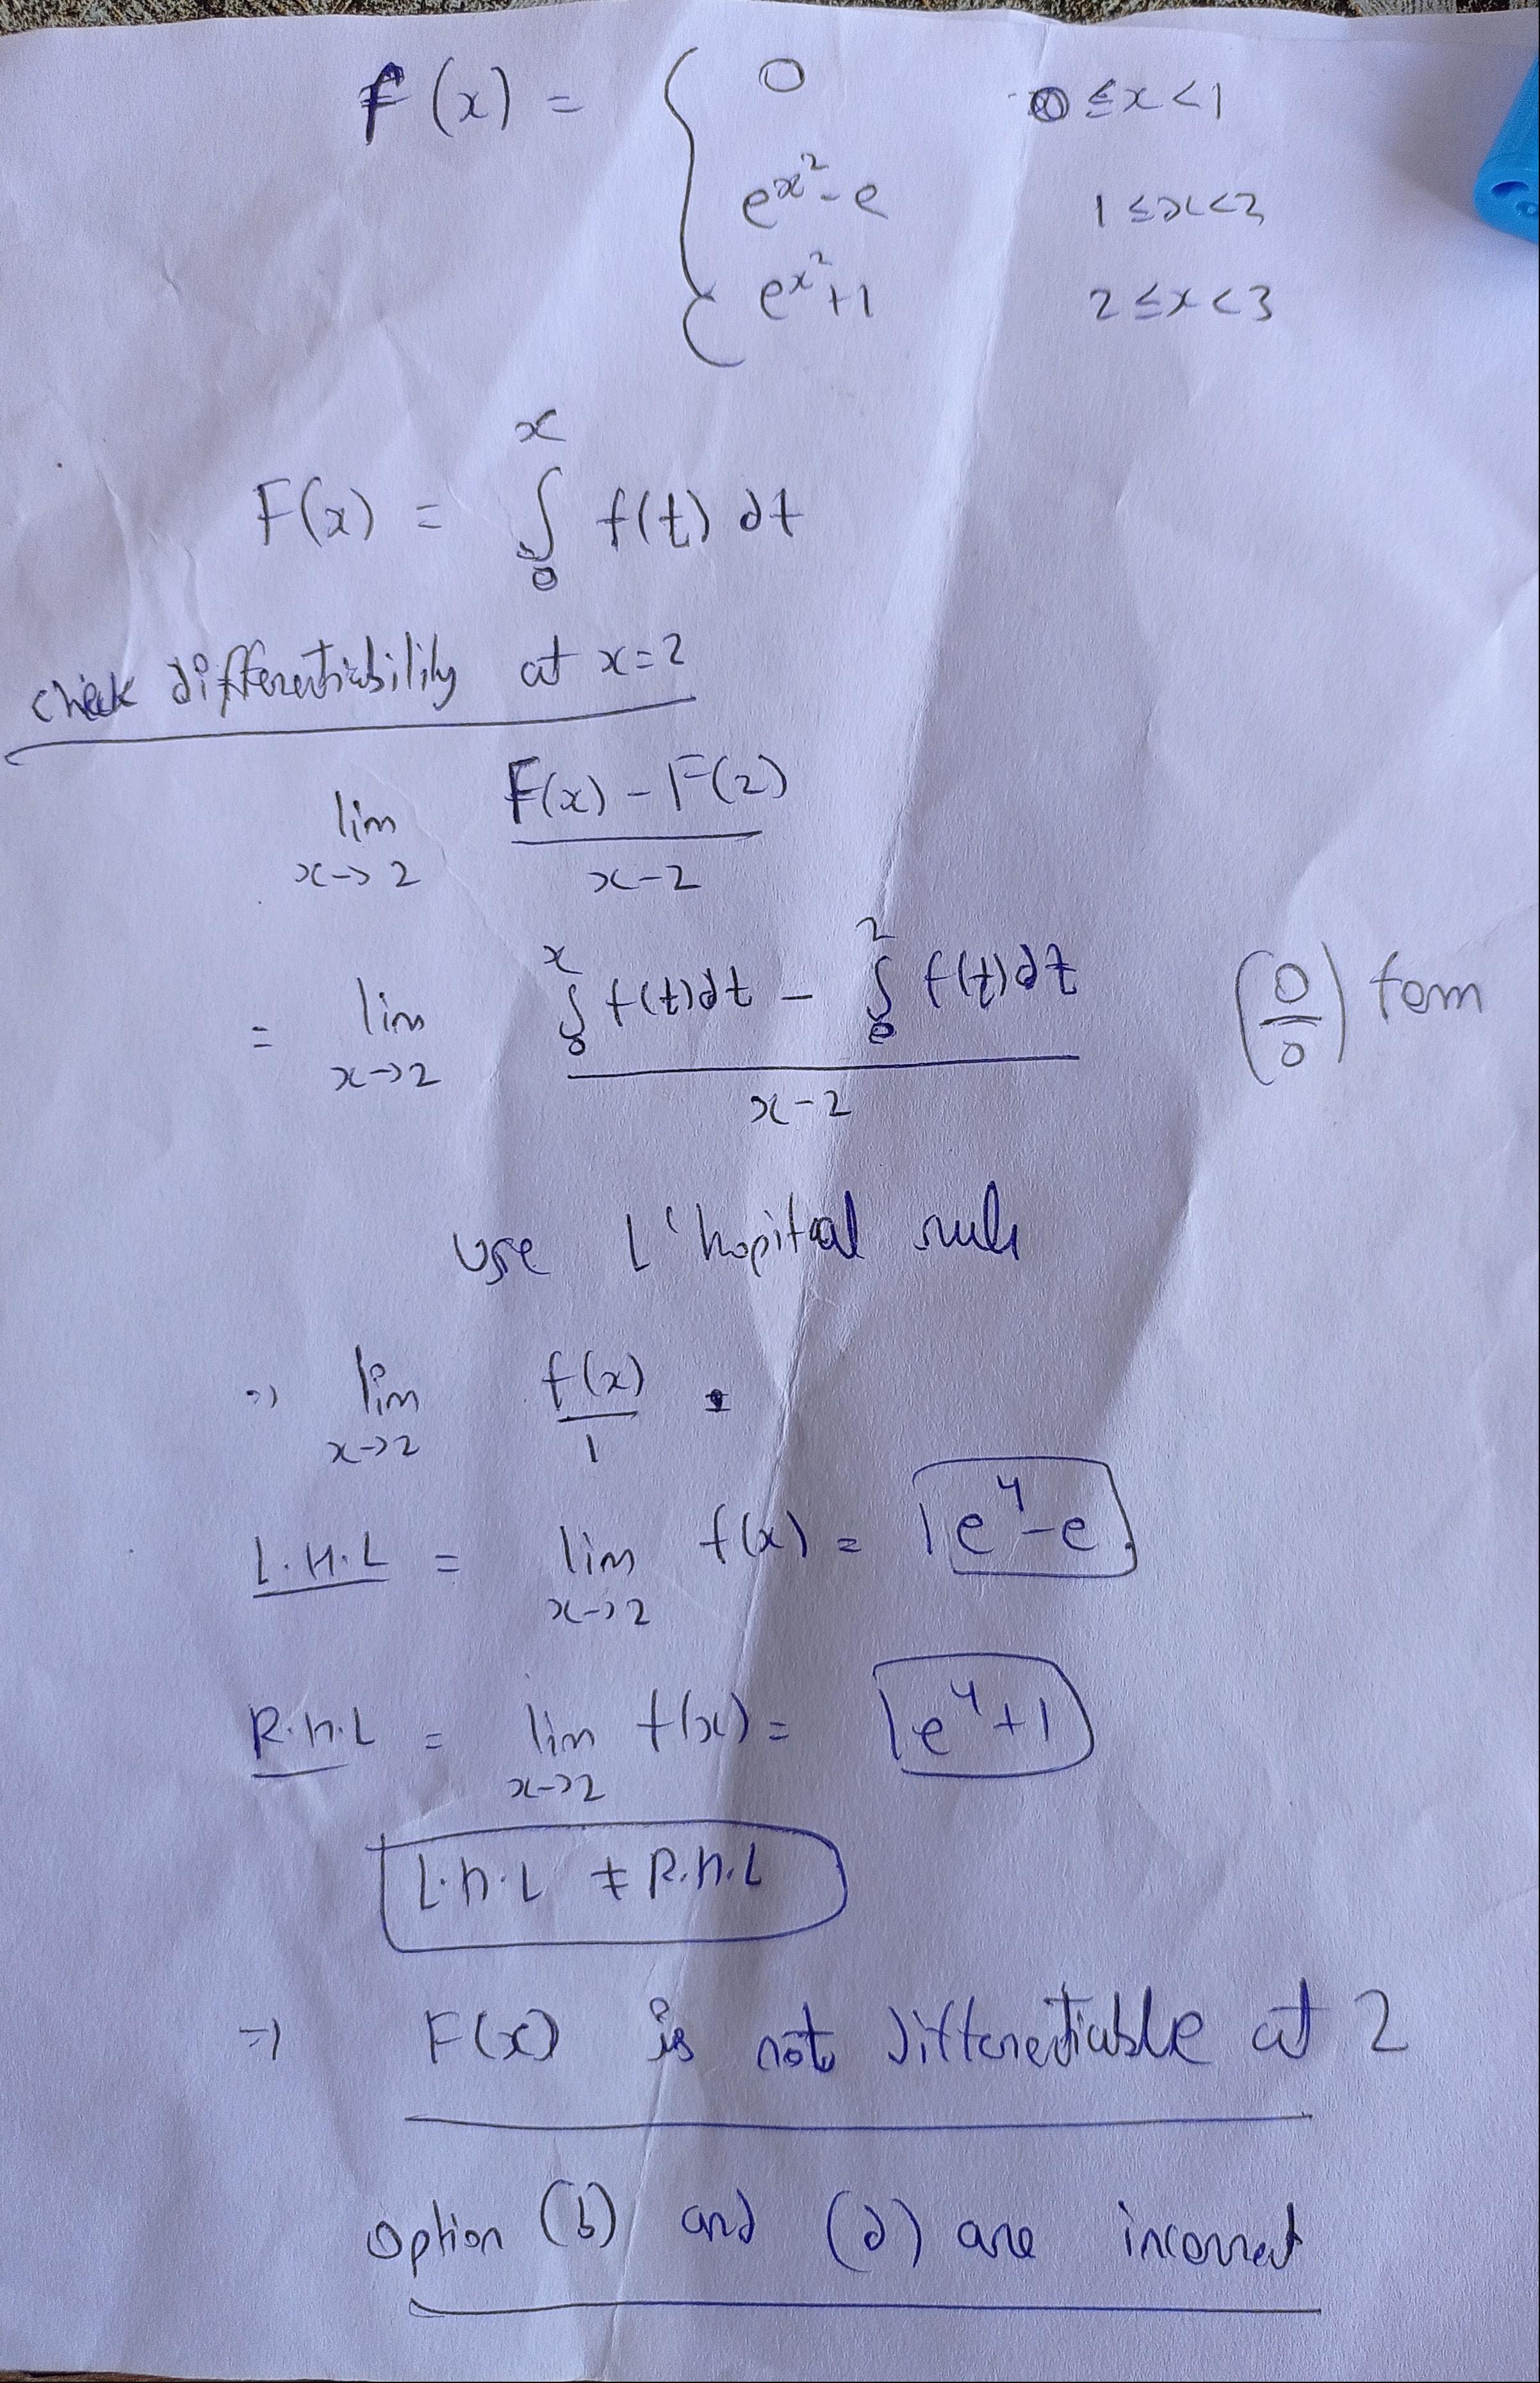 f(x) = { 0 0 ≤ x < 1
e^{x^2} - e 1 ≤ x < 2
e^{x^2} + 1 2 ≤ x < 3
F(x) = ∫_0^x f(t) dt
check differentiability at x=2
lim_{x→2} (F(x) - F(2)) / (x-2)
= lim_{x→2} (∫_0^x f(t)dt - ∫_0^2 f(t)dt) / (x-2) (0/0) form
use L'hopital rule
⇒ lim_{x→2} f(x)/1
L.H.L = lim_{x→2} f(x) = e^4 - e
R.H.L = lim_{x→2} f(x) = e^4 + 1
L.H.L ≠ R.H.L
⇒ F(x) is not differentiable at 2
option (b) and (d) are incorrect